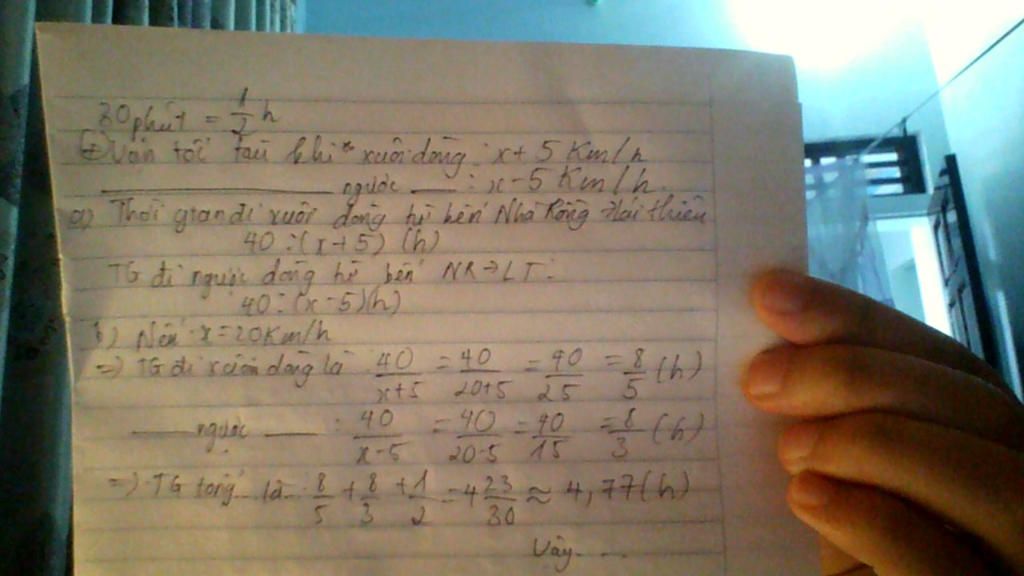 30 phút = 1/2 h
+) Vận tốc tàu khi xuôi dòng : x + 5 Km/h
ngược : x - 5 Km/h.
a) Thời gian đi xuôi dòng từ bến Nhà Rồng thiêu
40 : (x + 5) (h)
TG đi ngược dòng từ bến NR → LT :
40 : (x - 5) (h)
b) Nếu x = 20 Km/h
=> TG đi xuôi dòng là 40/x+5 = 40/20+5 = 40/25 = 8/5 (h)
ngược : 40/x-5 = 40/20-5 = 40/15 = 8/3 (h)
=> TG tổng là : 8/5 + 8/3 + 1/2 = 4 23/30 ≈ 4,77 (h)
Vậy ....